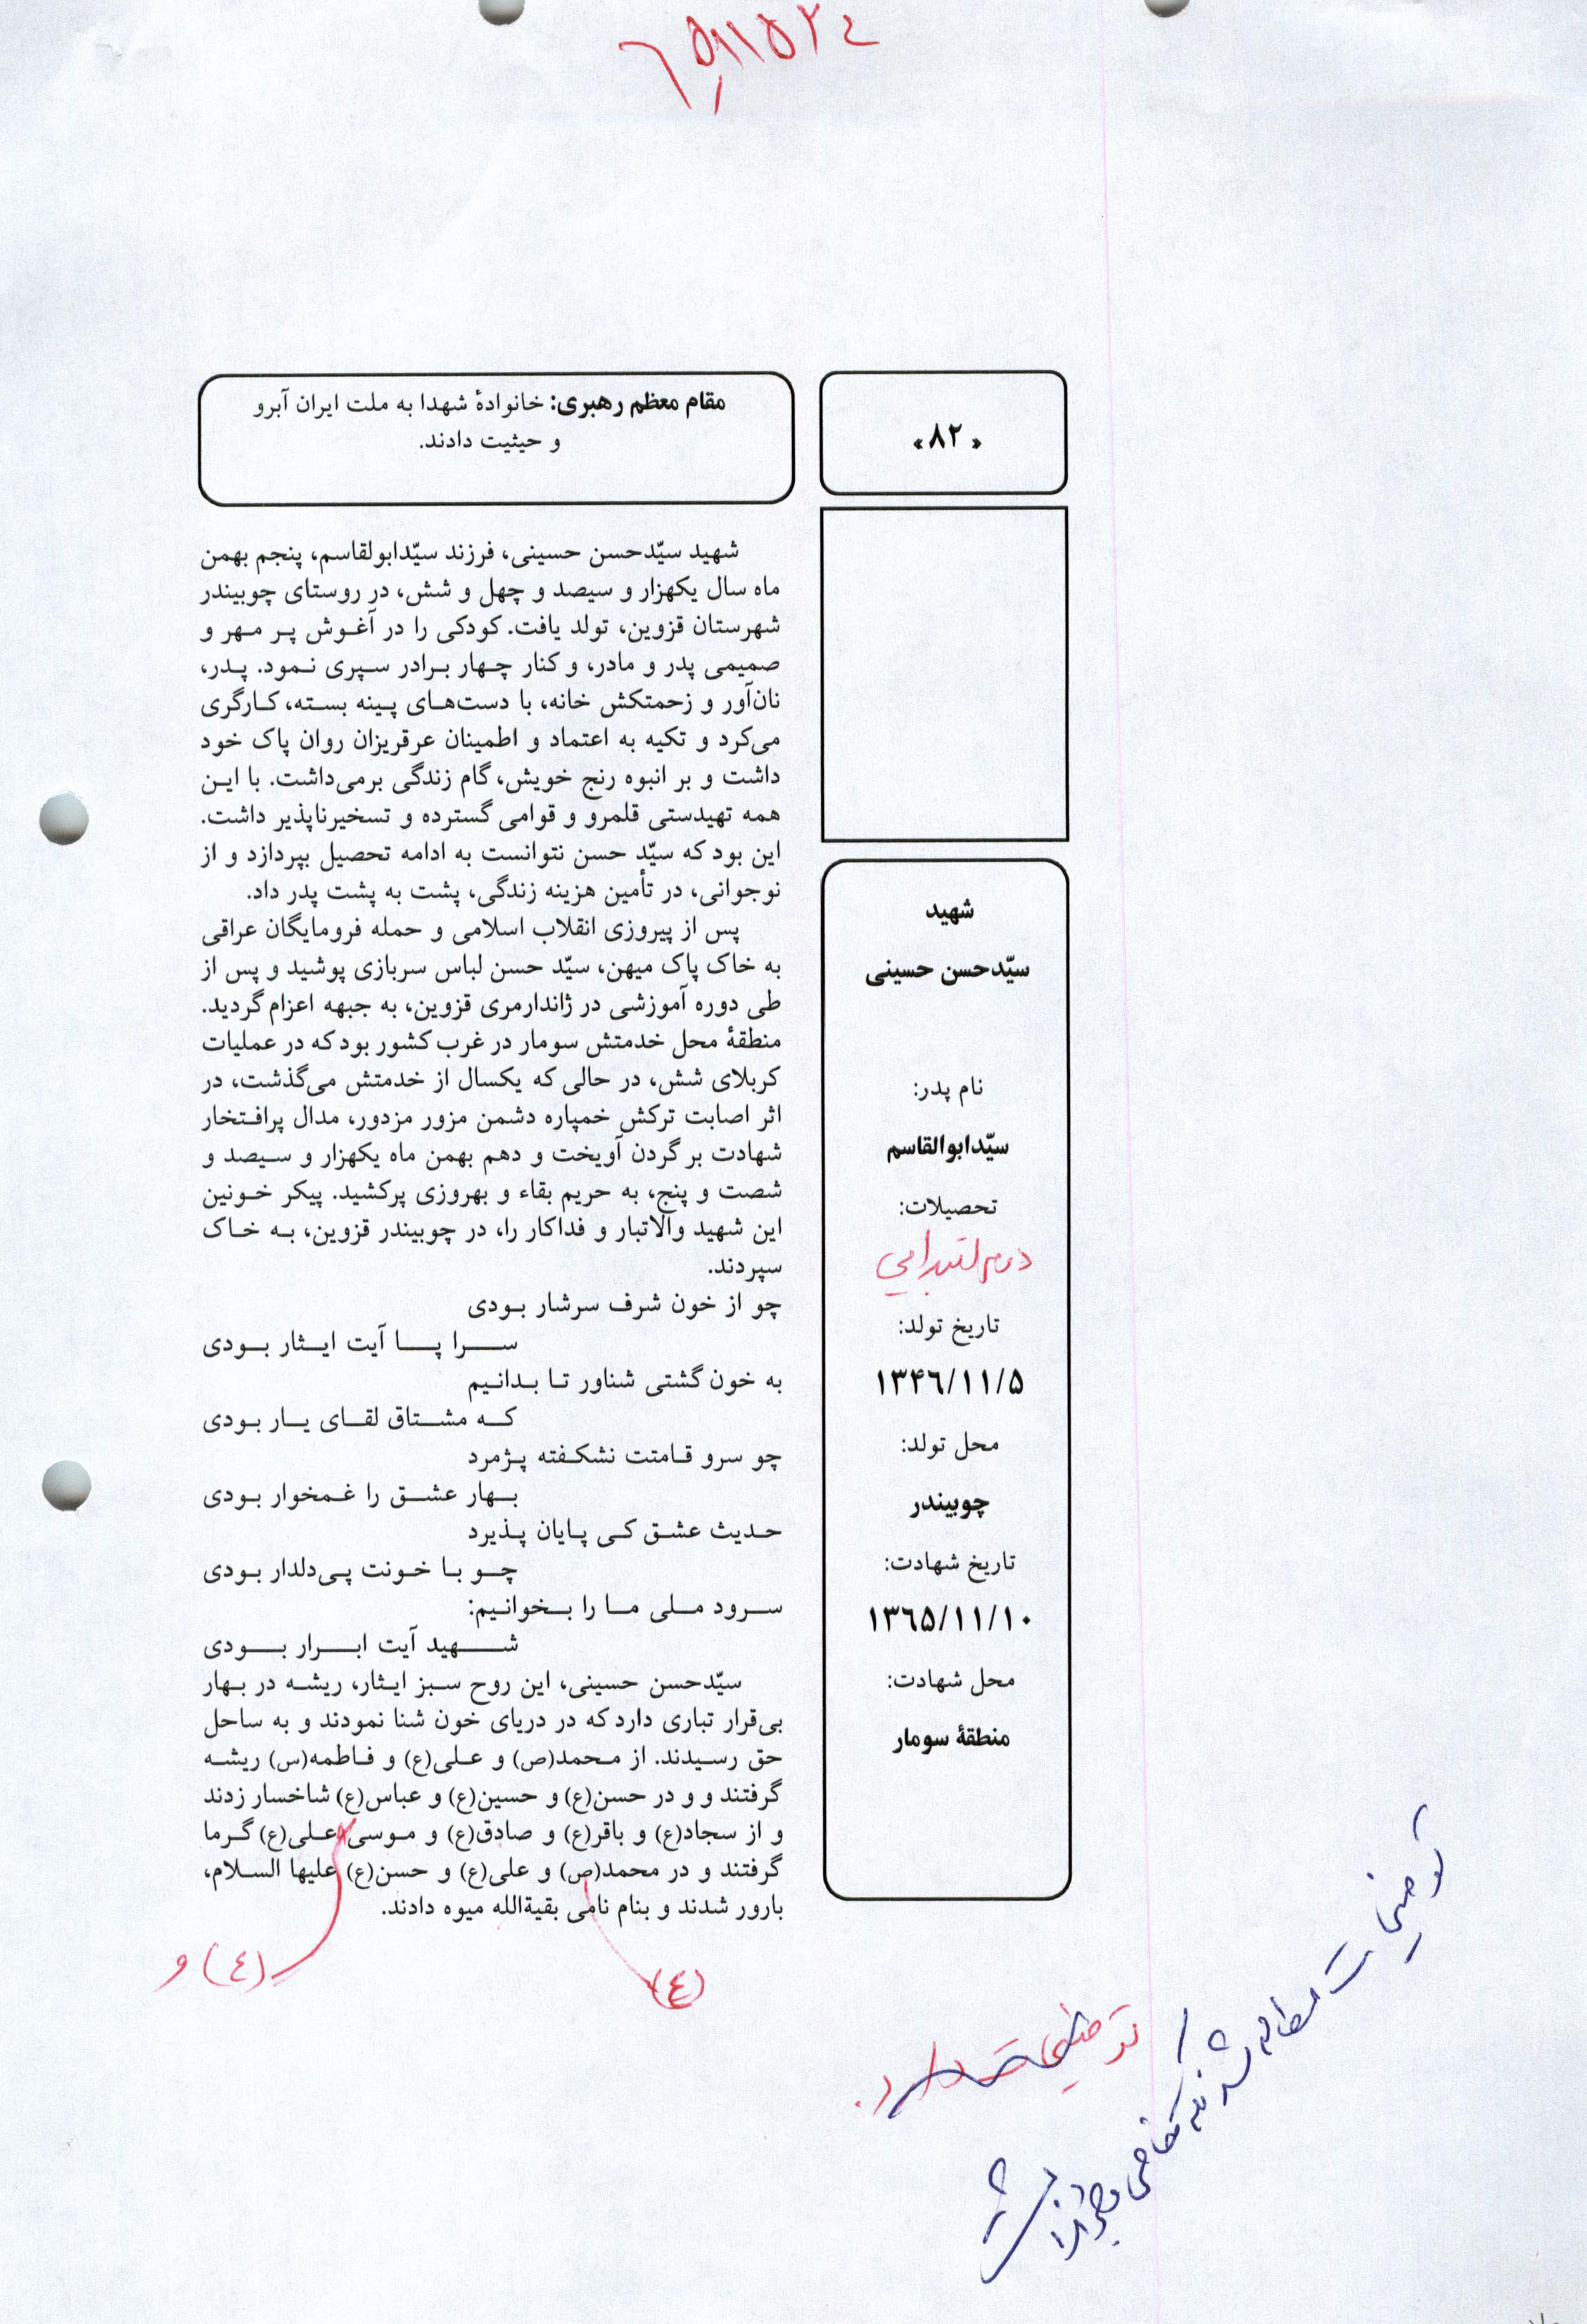 ۶۵۱۱۵۲۴
« ۸۲ »
مقام معظم رهبری: خانوادهٔ شهدا به ملت ایران آبرو
و حیثیت دادند.
شهید
سیّدحسن حسینی
نام پدر:
سیّدابوالقاسم
تحصیلات:
دوم ابتدایی
تاریخ تولد:
۱۳۴۶/۱۱/۵
محل تولد:
چوبیندر
تاریخ شهادت:
۱۳۶۵/۱۱/۱۰
محل شهادت:
منطقهٔ سومار
شهید سیّدحسن حسینی، فرزند سیّدابولقاسم، پنجم بهمن
ماه سال یکهزار و سیصد و چهل و شش، در روستای چوبیندر
شهرستان قزوین، تولد یافت. کودکی را در آغوش پر مهر و
صمیمی پدر و مادر، و کنار چهار برادر سپری نمود. پدر،
نان‌آور و زحمتکش خانه، با دست‌های پینه بسته، کارگری
می‌کرد و تکیه به اعتماد و اطمینان عرقریزان روان پاک خود
داشت و بر انبوه رنج خویش، گام زندگی برمی‌داشت. با این
همه تهیدستی قلمرو و قوامی گسترده و تسخیرناپذیر داشت.
این بود که سیّد حسن نتوانست به ادامه تحصیل بپردازد و از
نوجوانی، در تأمین هزینه زندگی، پشت به پشت پدر داد.
پس از پیروزی انقلاب اسلامی و حمله فرومایگان عراقی
به خاک پاک میهن، سیّد حسن لباس سربازی پوشید و پس از
طی دوره آموزشی در ژاندارمری قزوین، به جبهه اعزام گردید.
منطقهٔ محل خدمتش سومار در غرب کشور بود که در عملیات
کربلای شش، در حالی که یکسال از خدمتش می‌گذشت، در
اثر اصابت ترکش خمپاره دشمن مزور مزدور، مدال پرافتخار
شهادت بر گردن آویخت و دهم بهمن ماه یکهزار و سیصد و
شصت و پنج، به حریم بقاء و بهروزی پرکشید. پیکر خونین
این شهید والاتبار و فداکار را، در چوبیندر قزوین، به خاک
سپردند.
چو از خون شرف سرشار بودی
سرا پا آیت ایثار بودی
به خون گشتی شناور تا بدانیم
که مشتاق لقای یار بودی
چو سرو قامتت نشکفته پژمرد
بهار عشق را غمخوار بودی
حدیث عشق کی پایان پذیرد
چو با خونت پی‌دلدار بودی
سرود ملی ما را بخوانیم:
شهید آیت ابرار بودی
سیّدحسن حسینی، این روح سبز ایثار، ریشه در بهار
بی‌قرار تباری دارد که در دریای خون شنا نمودند و به ساحل
حق رسیدند. از محمد(ص) و علی(ع) و فاطمه(س) ریشه
گرفتند و و در حسن(ع) و حسین(ع) و عباس(ع) شاخسار زدند
و از سجاد(ع) و باقر(ع) و صادق(ع) و موسی علی(ع) گرما
گرفتند و در محمد(ص) و علی(ع) و حسن(ع) علیها السلام،
بارور شدند و بنام نامی بقیةالله میوه دادند.
(ع) و
(ع)
توضیحات دارد.
توضیحات مطالعه شد